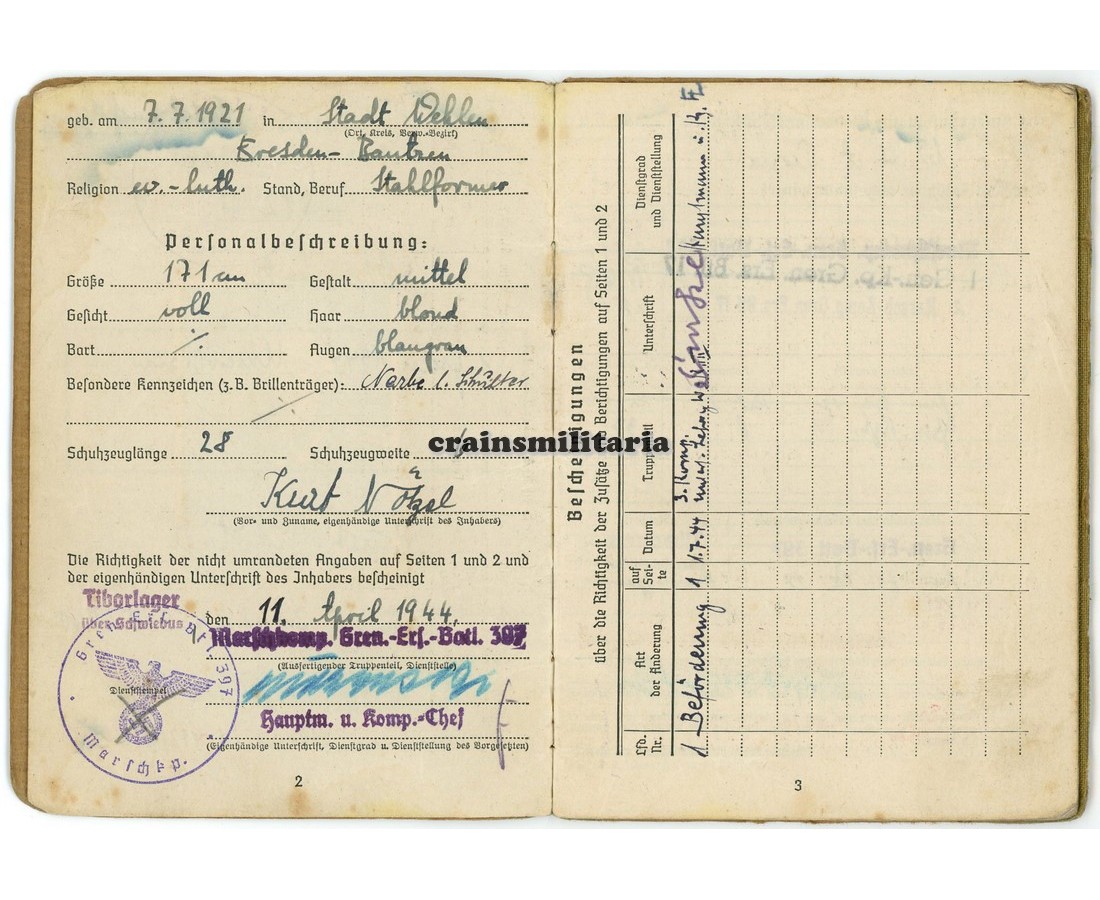 geb. am 7.7.1921 in Stadt Wehlen
(Ort, Kreis, Verw.-Bezirk)
Dresden-Bautzen
Religion ev.-luth. Stand, Beruf Stahlformer
Personalbeschreibung:
Größe 171 cm Gestalt mittel
Gesicht voll Haar blond
Bart ./. Augen blaugrau
Besondere Kennzeichen (z.B. Brillenträger): Narbe l. Schulter
Schuhzeuglänge 28 Schuhzeugweite
Kurt Nötzel
(Vor- und Zuname, eigenhändige Unterschrift des Inhabers)
Die Richtigkeit der nicht umrandeten Angaben auf Seiten 1 und 2 und
der eigenhändigen Unterschrift des Inhabers bescheinigt
Tiborlager
über Schwiebus
den 11. April 1944.
Marschkomp. Gren.-Ers.-Batl. 397
(Ausfertigender Truppenteil, Dienststelle)
Dienststempel
Marschkp.
Hauptm. u. Komp.-Chef
(Eigenhändige Unterschrift, Dienstgrad u. Dienststellung des Vorgesetzten)
2
crainsmilitaria
Bescheinigungen
über die Richtigkeit der Zusätze und Berichtigungen auf Seiten 1 und 2
Lfd. Nr.
Art der Änderung
auf Seite
Datum
Truppenteil
Unterschrift
Dienstgrad und Dienststellung
1 Beförderung 1 1.7.44 3. Komp.
Hauptmann u.
3